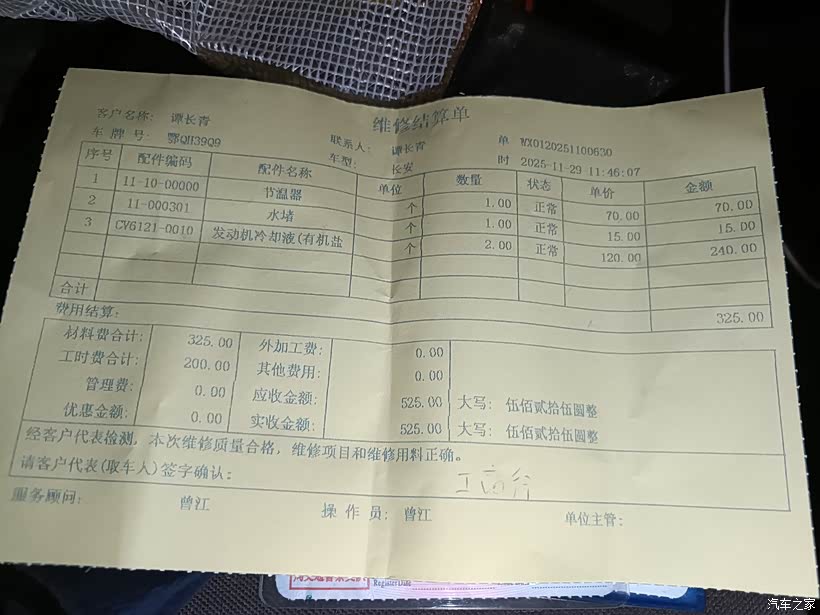 维修结算单
客户名称: 谭长青 联系人: 谭长青 单 WX0120251100630
车牌号: 鄂QH39Q9 车型: 长安 时 2025-11-29 11:46:07
序号 配件编码 配件名称 单位 数量 状态 单价 金额
1 11-10-00000 节温器 个 1.00 正常 70.00 70.00
2 11-000301 水堵 个 1.00 正常 15.00 15.00
3 CV6121-0010 发动机冷却液(有机盐 个 2.00 正常 120.00 240.00
合计 325.00
费用结算:
材料费合计: 325.00 外加工费: 0.00
工时费合计: 200.00 其他费用: 0.00
管理费: 0.00 应收金额: 525.00 大写: 伍佰贰拾伍圆整
优惠金额: 0.00 实收金额: 525.00 大写: 伍佰贰拾伍圆整
经客户代表检测,本次维修质量合格,维修项目和维修用料正确。
请客户代表(取车人)签字确认:
服务顾问: 曾江 操作员: 曾江 单位主管:
Register Date
汽车之家